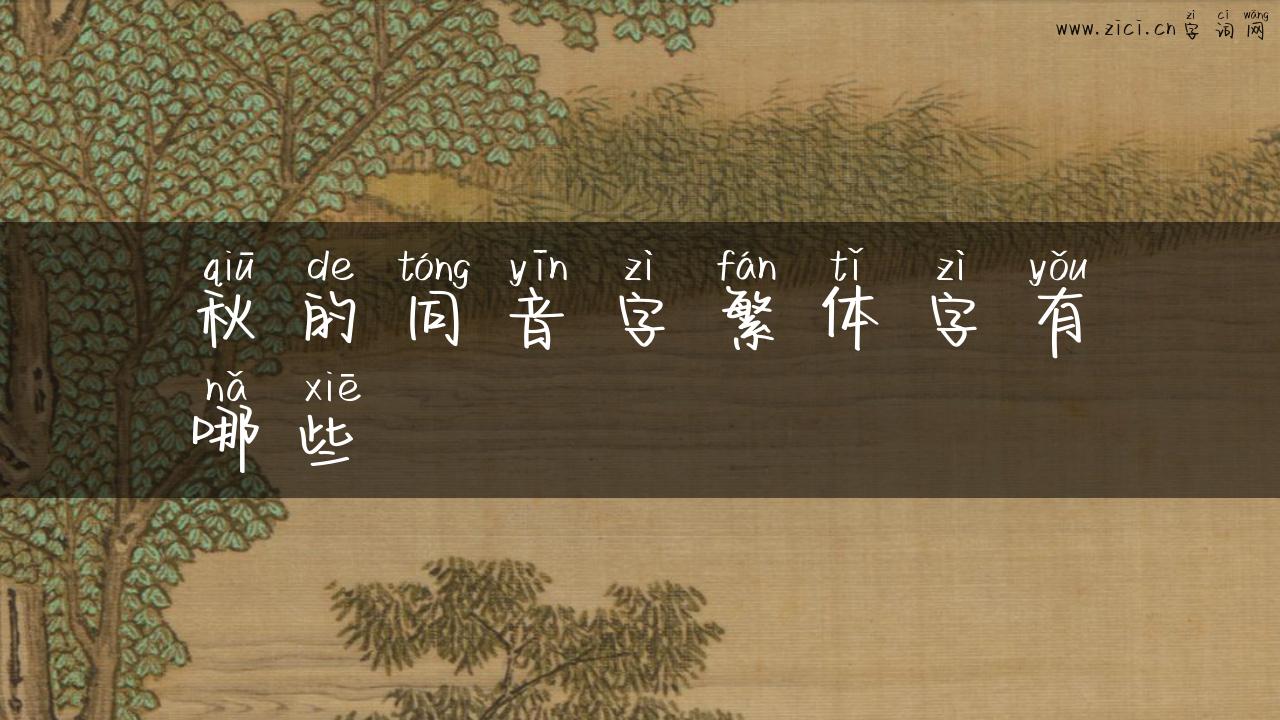 zì cí wǎng
www.zici.cn 字词网
qiū de tóng yīn zì fán tǐ zì yǒu
秋的同音字繁体字有
nǎ xiē
哪些